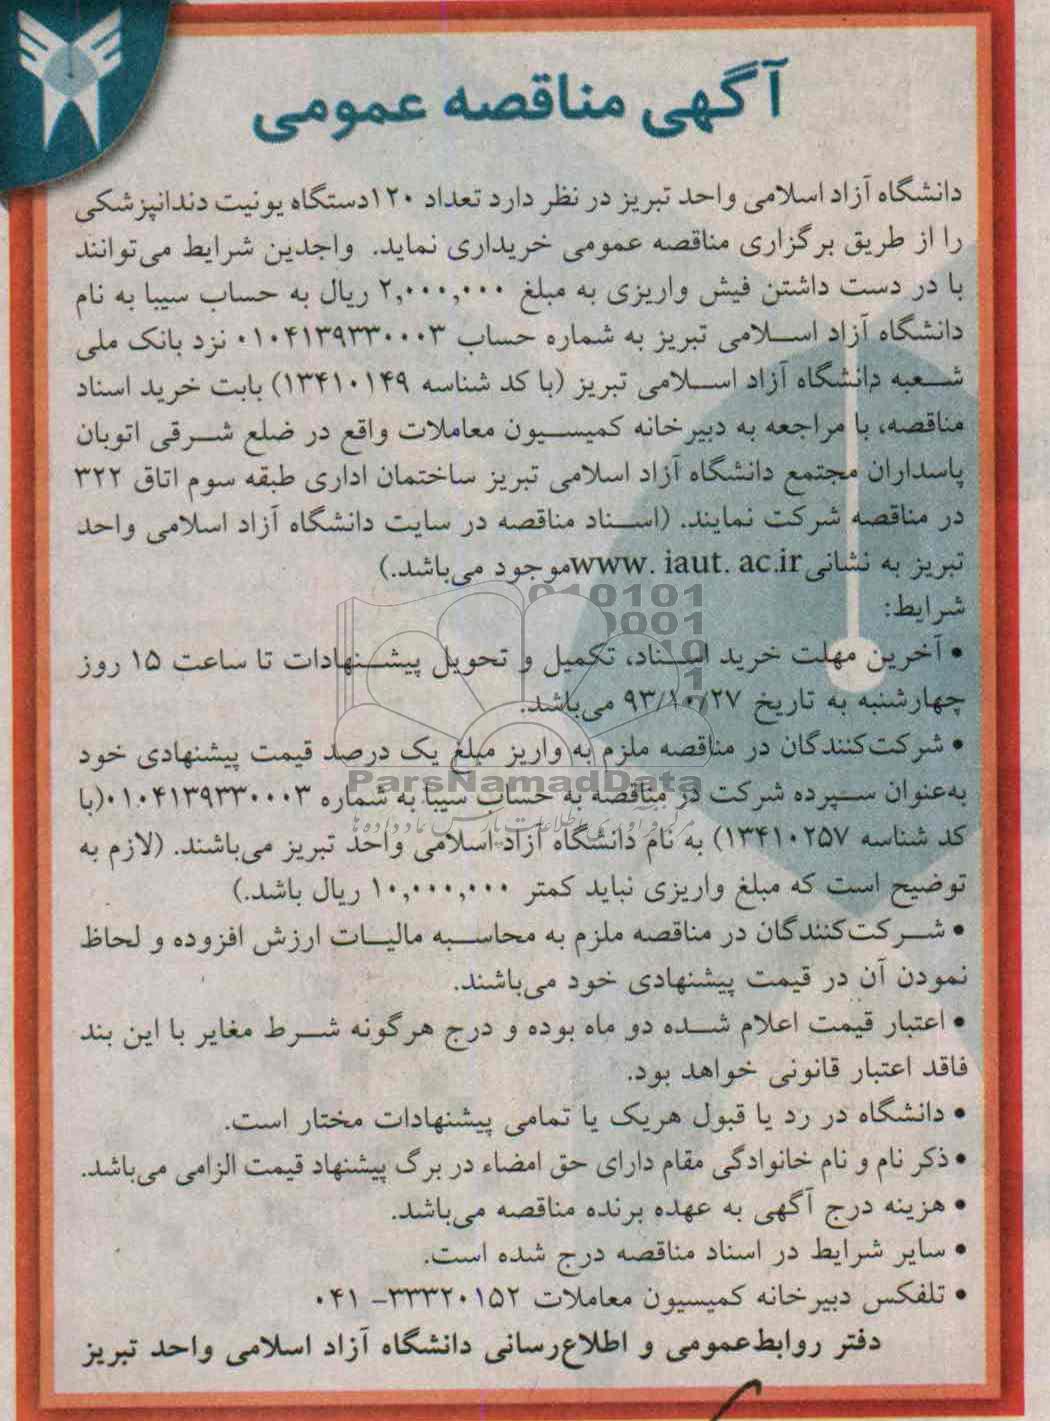 آگهی مناقصه عمومی
دانشگاه آزاد اسلامی واحد تبریز در نظر دارد تعداد ۱۲۰دستگاه یونیت دندانپزشکی
را از طریق برگزاری مناقصه عمومی خریداری نماید. واجدین شرایط می‌توانند
با در دست داشتن فیش واریزی به مبلغ ۲,۰۰۰,۰۰۰ ریال به حساب سیبا به نام
دانشگاه آزاد اسلامی تبریز به شماره حساب ۰۱۰۴۱۳۹۳۳۰۰۰۳ نزد بانک ملی
شعبه دانشگاه آزاد اسلامی تبریز (با کد شناسه ۱۳۴۱۰۱۴۹) بابت خرید اسناد
مناقصه، با مراجعه به دبیرخانه کمیسیون معاملات واقع در ضلع شرقی اتوبان
پاسداران مجتمع دانشگاه آزاد اسلامی تبریز ساختمان اداری طبقه سوم اتاق ۳۲۲
در مناقصه شرکت نمایند. (اسناد مناقصه در سایت دانشگاه آزاد اسلامی واحد
تبریز به نشانی www. iaut. ac.ir موجود می‌باشد.)
شرایط:
• آخرین مهلت خرید اسناد، تکمیل و تحویل پیشنهادات تا ساعت ۱۵ روز
چهارشنبه به تاریخ ۹۳/۱۰/۲۷ می‌باشد.
• شرکت‌کنندگان در مناقصه ملزم به واریز مبلغ یک درصد قیمت پیشنهادی خود
به‌عنوان سپرده شرکت در مناقصه به حساب سیبا به شماره ۰۱۰۴۱۳۹۳۳۰۰۰۳(با
کد شناسه ۱۳۴۱۰۲۵۷) به نام دانشگاه آزاد اسلامی واحد تبریز می‌باشند. (لازم به
توضیح است که مبلغ واریزی نباید کمتر ۱۰,۰۰۰,۰۰۰ ریال باشد.)
• شرکت‌کنندگان در مناقصه ملزم به محاسبه مالیات ارزش افزوده و لحاظ
نمودن آن در قیمت پیشنهادی خود می‌باشند.
• اعتبار قیمت اعلام شده دو ماه بوده و درج هرگونه شرط مغایر با این بند
فاقد اعتبار قانونی خواهد بود.
• دانشگاه در رد یا قبول هریک یا تمامی پیشنهادات مختار است.
• ذکر نام و نام خانوادگی مقام دارای حق امضاء در برگ پیشنهاد قیمت الزامی می‌باشد.
• هزینه درج آگهی به عهده برنده مناقصه می‌باشد.
• سایر شرایط در اسناد مناقصه درج شده است.
• تلفکس دبیرخانه کمیسیون معاملات ۳۳۳۲۰۱۵۲- ۰۴۱
دفتر روابط‌عمومی و اطلاع‌رسانی دانشگاه آزاد اسلامی واحد تبریز
ParsNamadData